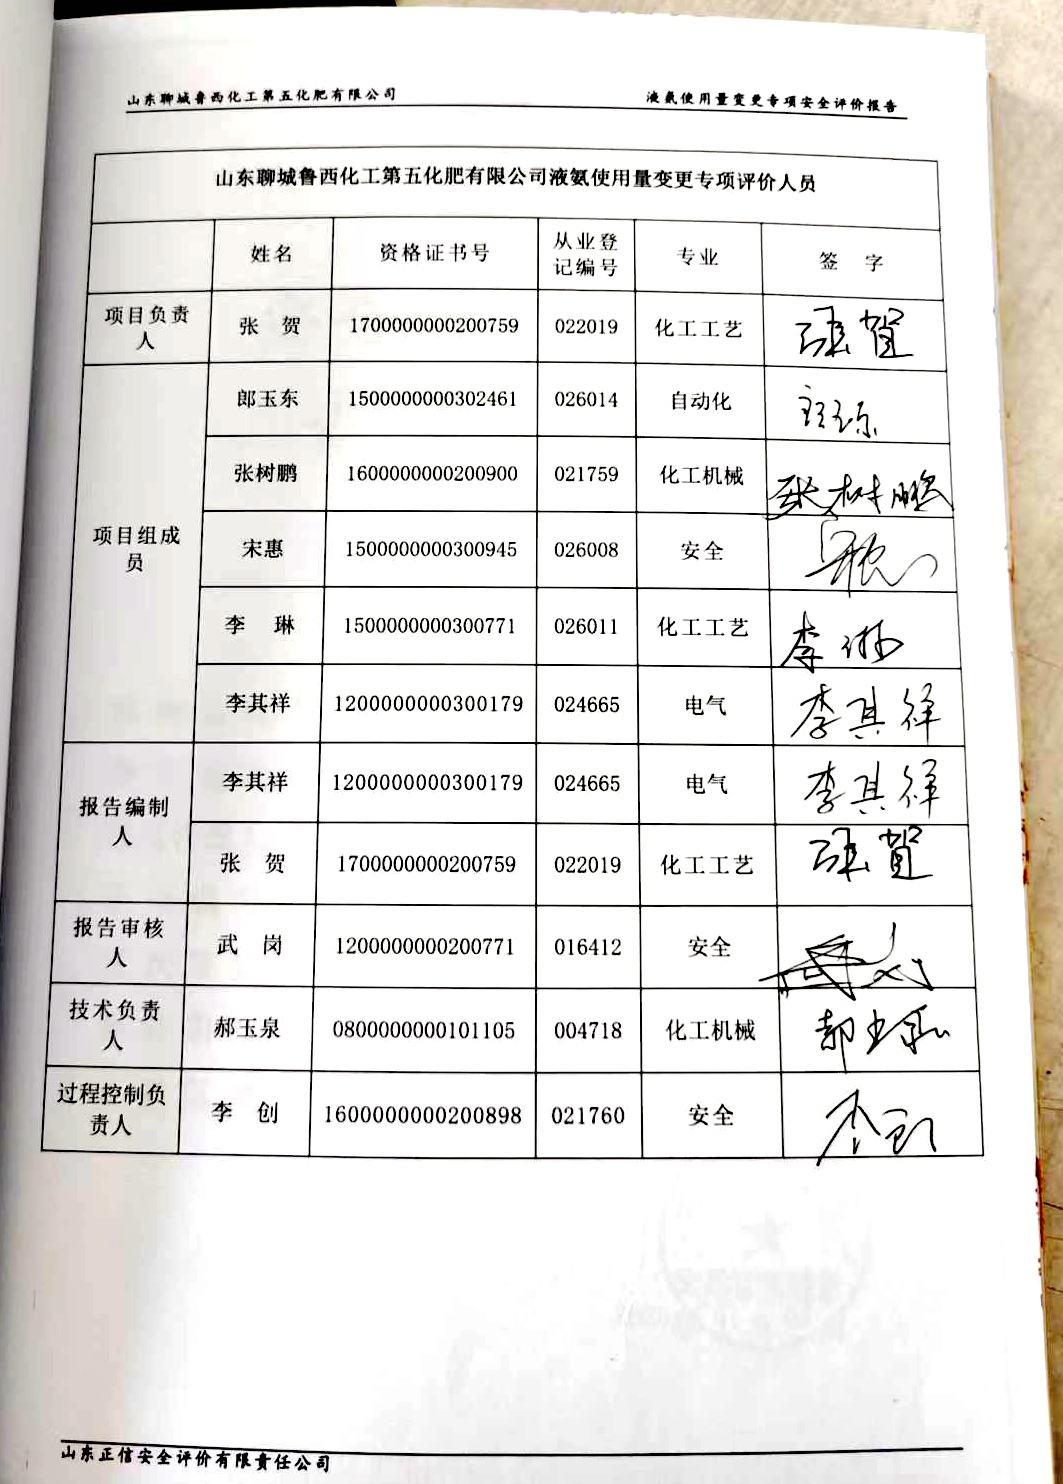 山东聊城鲁西化工第五化肥有限公司 液氨使用量变更专项安全评价报告
山东聊城鲁西化工第五化肥有限公司液氨使用量变更专项评价人员
姓名 资格证书号 从业登记编号 专业 签 字
项目负责人 张 贺 1700000000200759 022019 化工工艺 张贺
项目组成员 郎玉东 1500000000302461 026014 自动化
张树鹏 1600000000200900 021759 化工机械 张树鹏
宋惠 1500000000300945 026008 安全
李 琳 1500000000300771 026011 化工工艺 李琳
李其祥 1200000000300179 024665 电气 李其祥
报告编制人 李其祥 1200000000300179 024665 电气 李其祥
张 贺 1700000000200759 022019 化工工艺 张贺
报告审核人 武 岗 1200000000200771 016412 安全
技术负责人 郝玉泉 0800000000101105 004718 化工机械 郝玉泉
过程控制负责人 李 创 1600000000200898 021760 安全 李创
山东正信安全评价有限责任公司